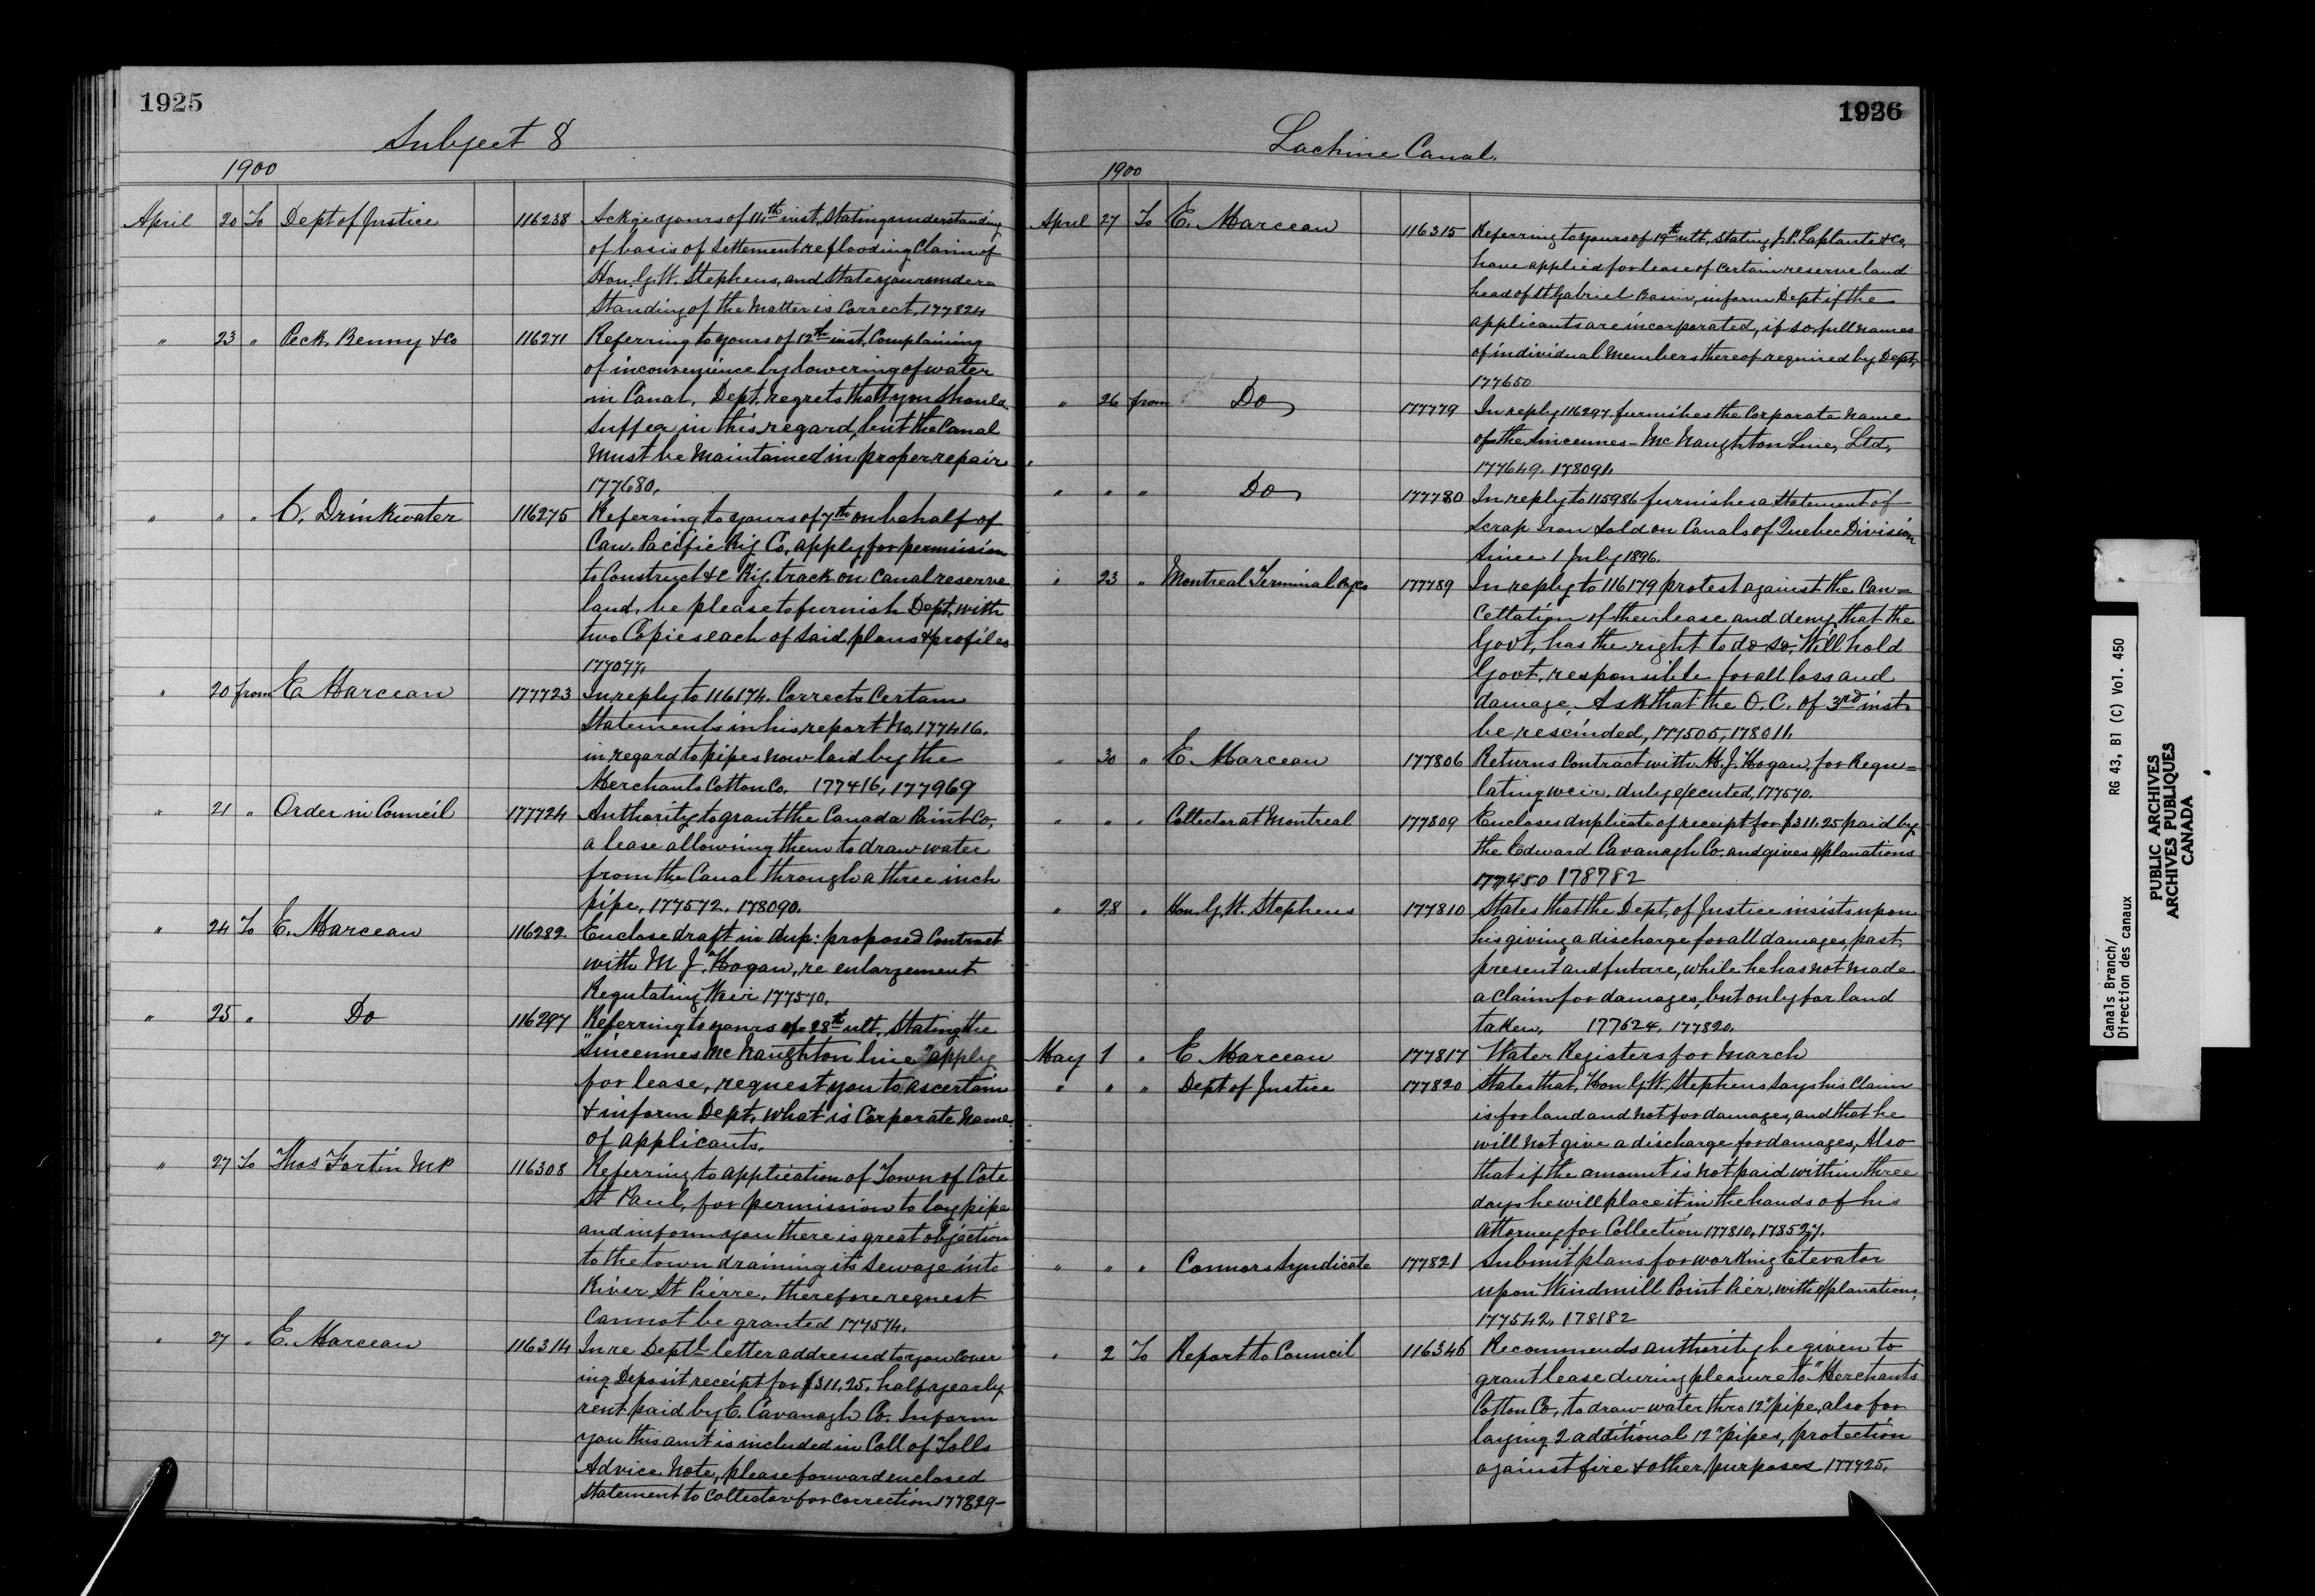 1925
Subject 8
1900
April 20 To Dept of Justice 116238 Ackge yours of 14th inst, Stating understanding
of basis of Settlement re flooding Claim of
Hon. G.W. Stephens, and State your under=
standing of the Matter is Correct, 177824
" 23 " Peck, Benny & Co 116271 Referring to yours of 12th inst, Complaining
of inconvenience by lowering of water
in Canal, Dept. regrets that you should
suffer in this regard, but the Canal
Must be Maintained in proper repair
177680,
" " " C. Drinkwater 116275 Referring to yours of 7th on behalf of
Can. Pacific Rly Co, apply for permission
to Construct &c Rly. track on Canal reserve
land, be please to furnish Dept, with
two Copies each of said plans & profiles
177077,
" 20 from E. Marceau 177723 In reply to 116174. Corrects Certain
Statements in his report No, 177416.
in regard to pipes now laid by the
Merchants Cotton Co. 177416, 177969
" 21 " Order in Council 177724 Authority to grant the Canada Paint Co,
a lease allowing them to draw water
from the Canal through a three inch
pipe, 177572. 178090.
" 24 To E. Marceau 116282 Enclose draft in dup: proposed Contract
with M J. Hogan, re enlargement
Regulating Weir 177570.
" 25 " Do 116297 Referring to yours of 28th ult, Stating the
"Sincennes McNaughton line" apply
for lease, request you to ascertain
& inform Dept, what is Corporate Name
of applicants.
" 27 To Thos Fortin MP 116308 Referring to application of Town of Cote
St Paul, for permission to lay pipe
and inform you there is great objection
to the town draining its Sewage into
River St Pierre, therefore request
Cannot be granted 177574.
" 27 " E. Marceau 116314 In re Deptl letter addressed to you Cover
ing Deposit receipt for $311.25. half yearly
rent paid by E. Cavanagh Co. Inform
you this amt is included in Coll of Tolls
Advice Note, please forward enclosed
Statement to Collector for Correction 177829-
1926
Lachine Canal.
1900
April 27 To E. Marceau 116315 Referring to yours of 19th ult, Stating J.P. Laplante & Co,
have applied for lease of Certain reserve land
head of St Gabriel Basin, inform Dept if the
applicants are incorporated, if so, full names
of individual Members thereof required by Dept,
177650
" 26 from Do 177779 In reply 116297. furnishes the Corporate Name
of the Sincennes-McNaughton Line, Ltd,
177649. 178091.
" " " Do 177780 In reply to 115986 furnishes a Statement of
Scrap Iron Sold on Canals of Quebec Division
Since 1 July 1896.
" 23 " Montreal Terminal Ry Co 177789 In reply to 116179 protest against the Can=
cellation of their lease and deny that the
Govt, has the right to do so, Will hold
Govt, responsible for all loss and
damage, Ask that the O.C. of 3rd inst
be rescinded, 177505, 178011.
" 30 " E. Marceau 177806 Returns Contract with M.J. Hogan, for Regu=
lating weir, duly executed, 177570.
" " " Collector at Montreal 177809 Encloses duplicate of receipt for $311.25 paid by
the Edward Cavanagh Co. and gives explanations
177450 178782
" 28 " Hon G.W. Stephens 177810 States that the Dept, of Justice insists upon
his giving a discharge for all damages, past,
present and future, while he has not made
a Claim for damages, but only for land
taken, 177624. 177820.
May 1 " E Marceau 177817 Water Registers for March
" " " Dept of Justice 177820 States that, Hon G.W. Stephens says his Claim
is for land and not for damages, and that he
will not give a discharge for damages, Also
that if the amount is not paid within three
days he will place it in the hands of his
Attorney for Collection 177810, 178527.
" " " Connors Syndicate 177821 Submit plans for working Elevator
upon Windmill Point Pier, with explanations,
177542, 178182
" 2 To Report to Council 116346 Recommends authority be given to
grant lease during pleasure to "Merchants
Cotton Co, to draw water thro 12" pipe, also for
laying 2 additional 12" pipes, protection
against fire & other purposes 177425.
Canals Branch/ RG 43, B1 (C) Vol. 450
Direction des canaux
PUBLIC ARCHIVES
ARCHIVES PUBLIQUES
CANADA